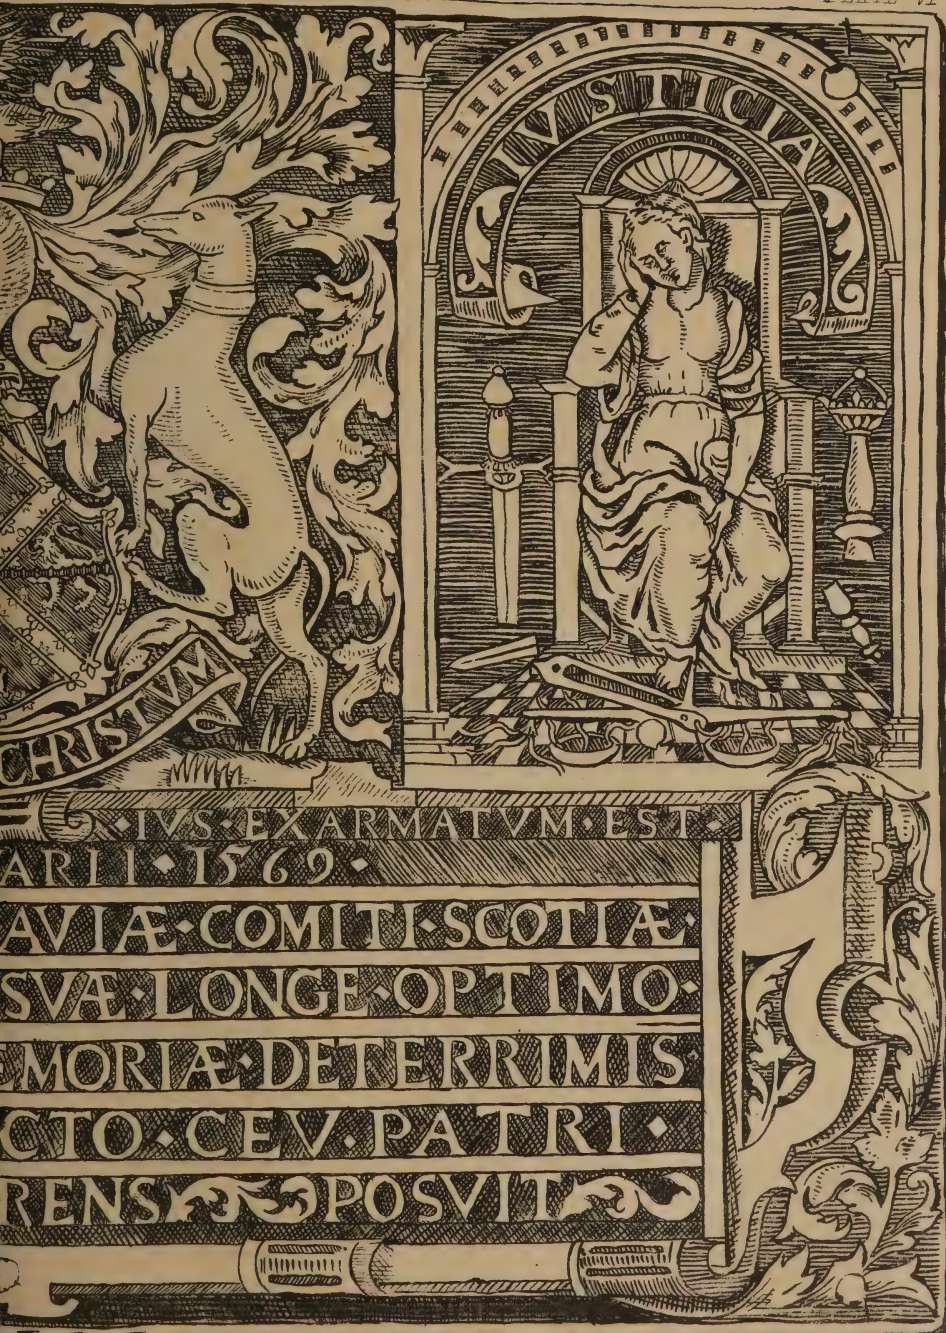 PLATE VI
IVSTICIA
CHRISTVM
·IVS·EXARMATVM·EST·
ARII·1569·
AVIÆ·COMITI·SCOTIÆ·
SVÆ·LONGE·OPTIMO·
EMORIÆ·DETERRIMIS·
CTO·CEV·PATRI·
RENS POSVIT